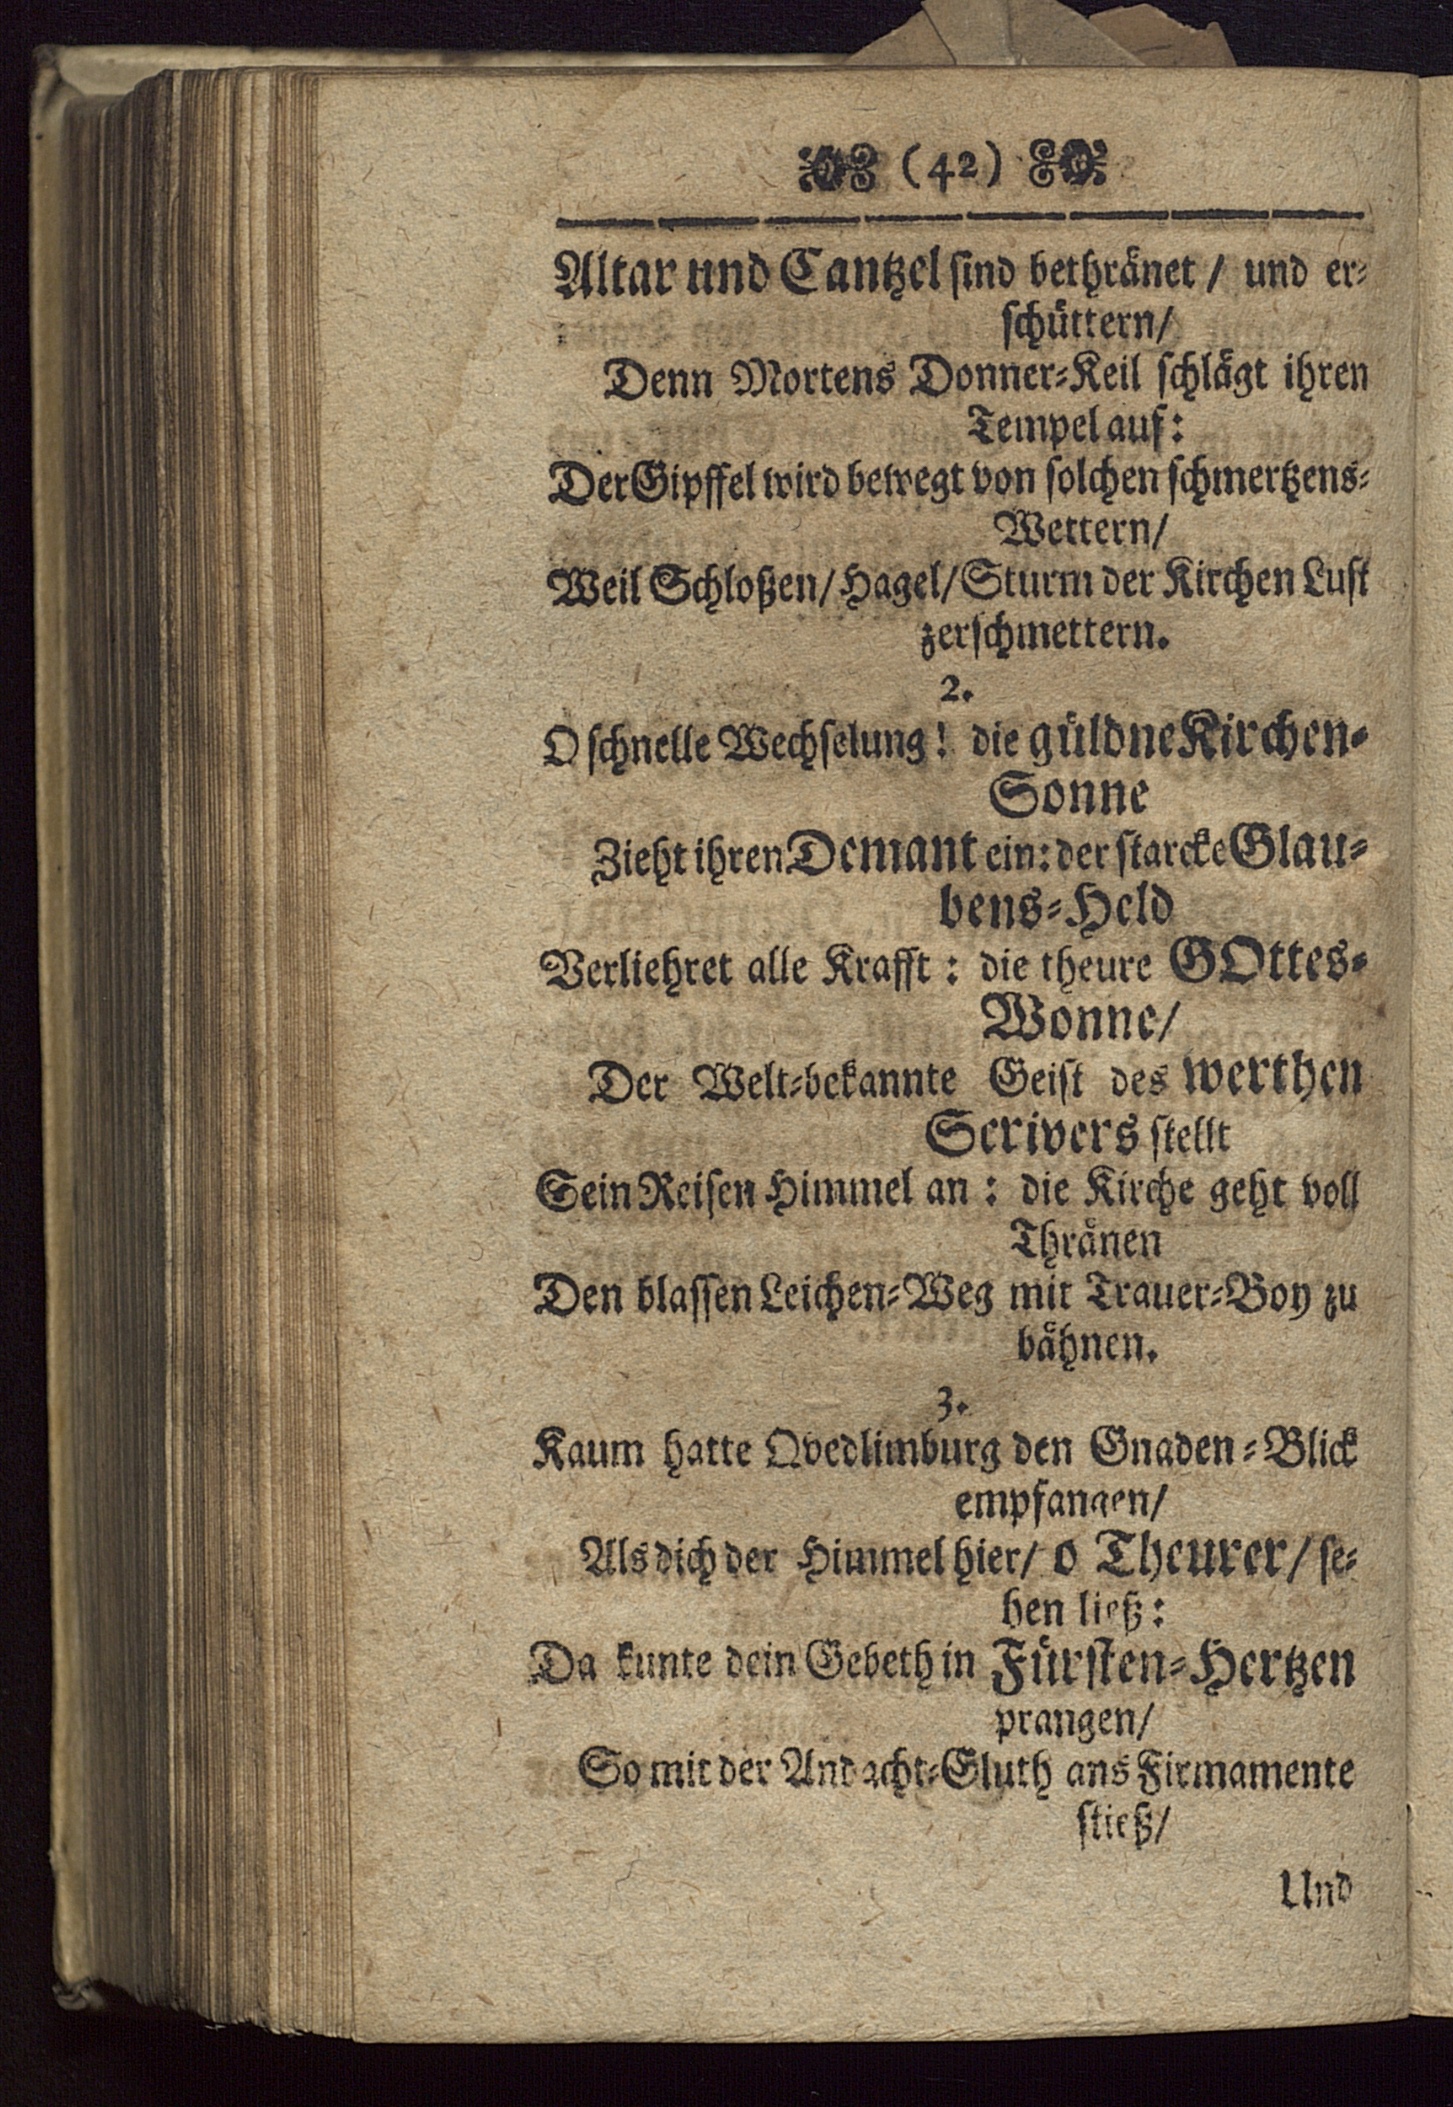 (42)
Altar und Cantzel sind bethränet / und er-
schüttern/
Denn Mortens Donner-Keil schlägt ihren
Tempel auf:
Der Gipffel wird bewegt von solchen schmertzens-
Wettern/
Weil Schloßen/Hagel/Sturm der Kirchen Lust
zerschmettern.
2.
O schnelle Wechselung! die güldne Kirchen-
Sonne
Zieht ihren Demant ein: der starcke Glau-
bens-Held
Verliehret alle Krafft: die theure GOttes-
Wonne/
Der Welt-bekannte Geist des werthen
Scrivers stellt
Sein Reisen Himmel an: die Kirche geht voll
Thränen
Den blassen Leichen-Weg mit Trauer-Boy zu
bähnen.
3.
Kaum hatte Qvedlimburg den Gnaden-Blick
empfangen/
Als dich der Himmel hier/ o Theurer/ se-
hen ließ:
Da kunte dein Gebeth in Fürsten-Hertzen
prangen/
So mit der Andacht-Gluth ans Firmamente
stieß/
Und